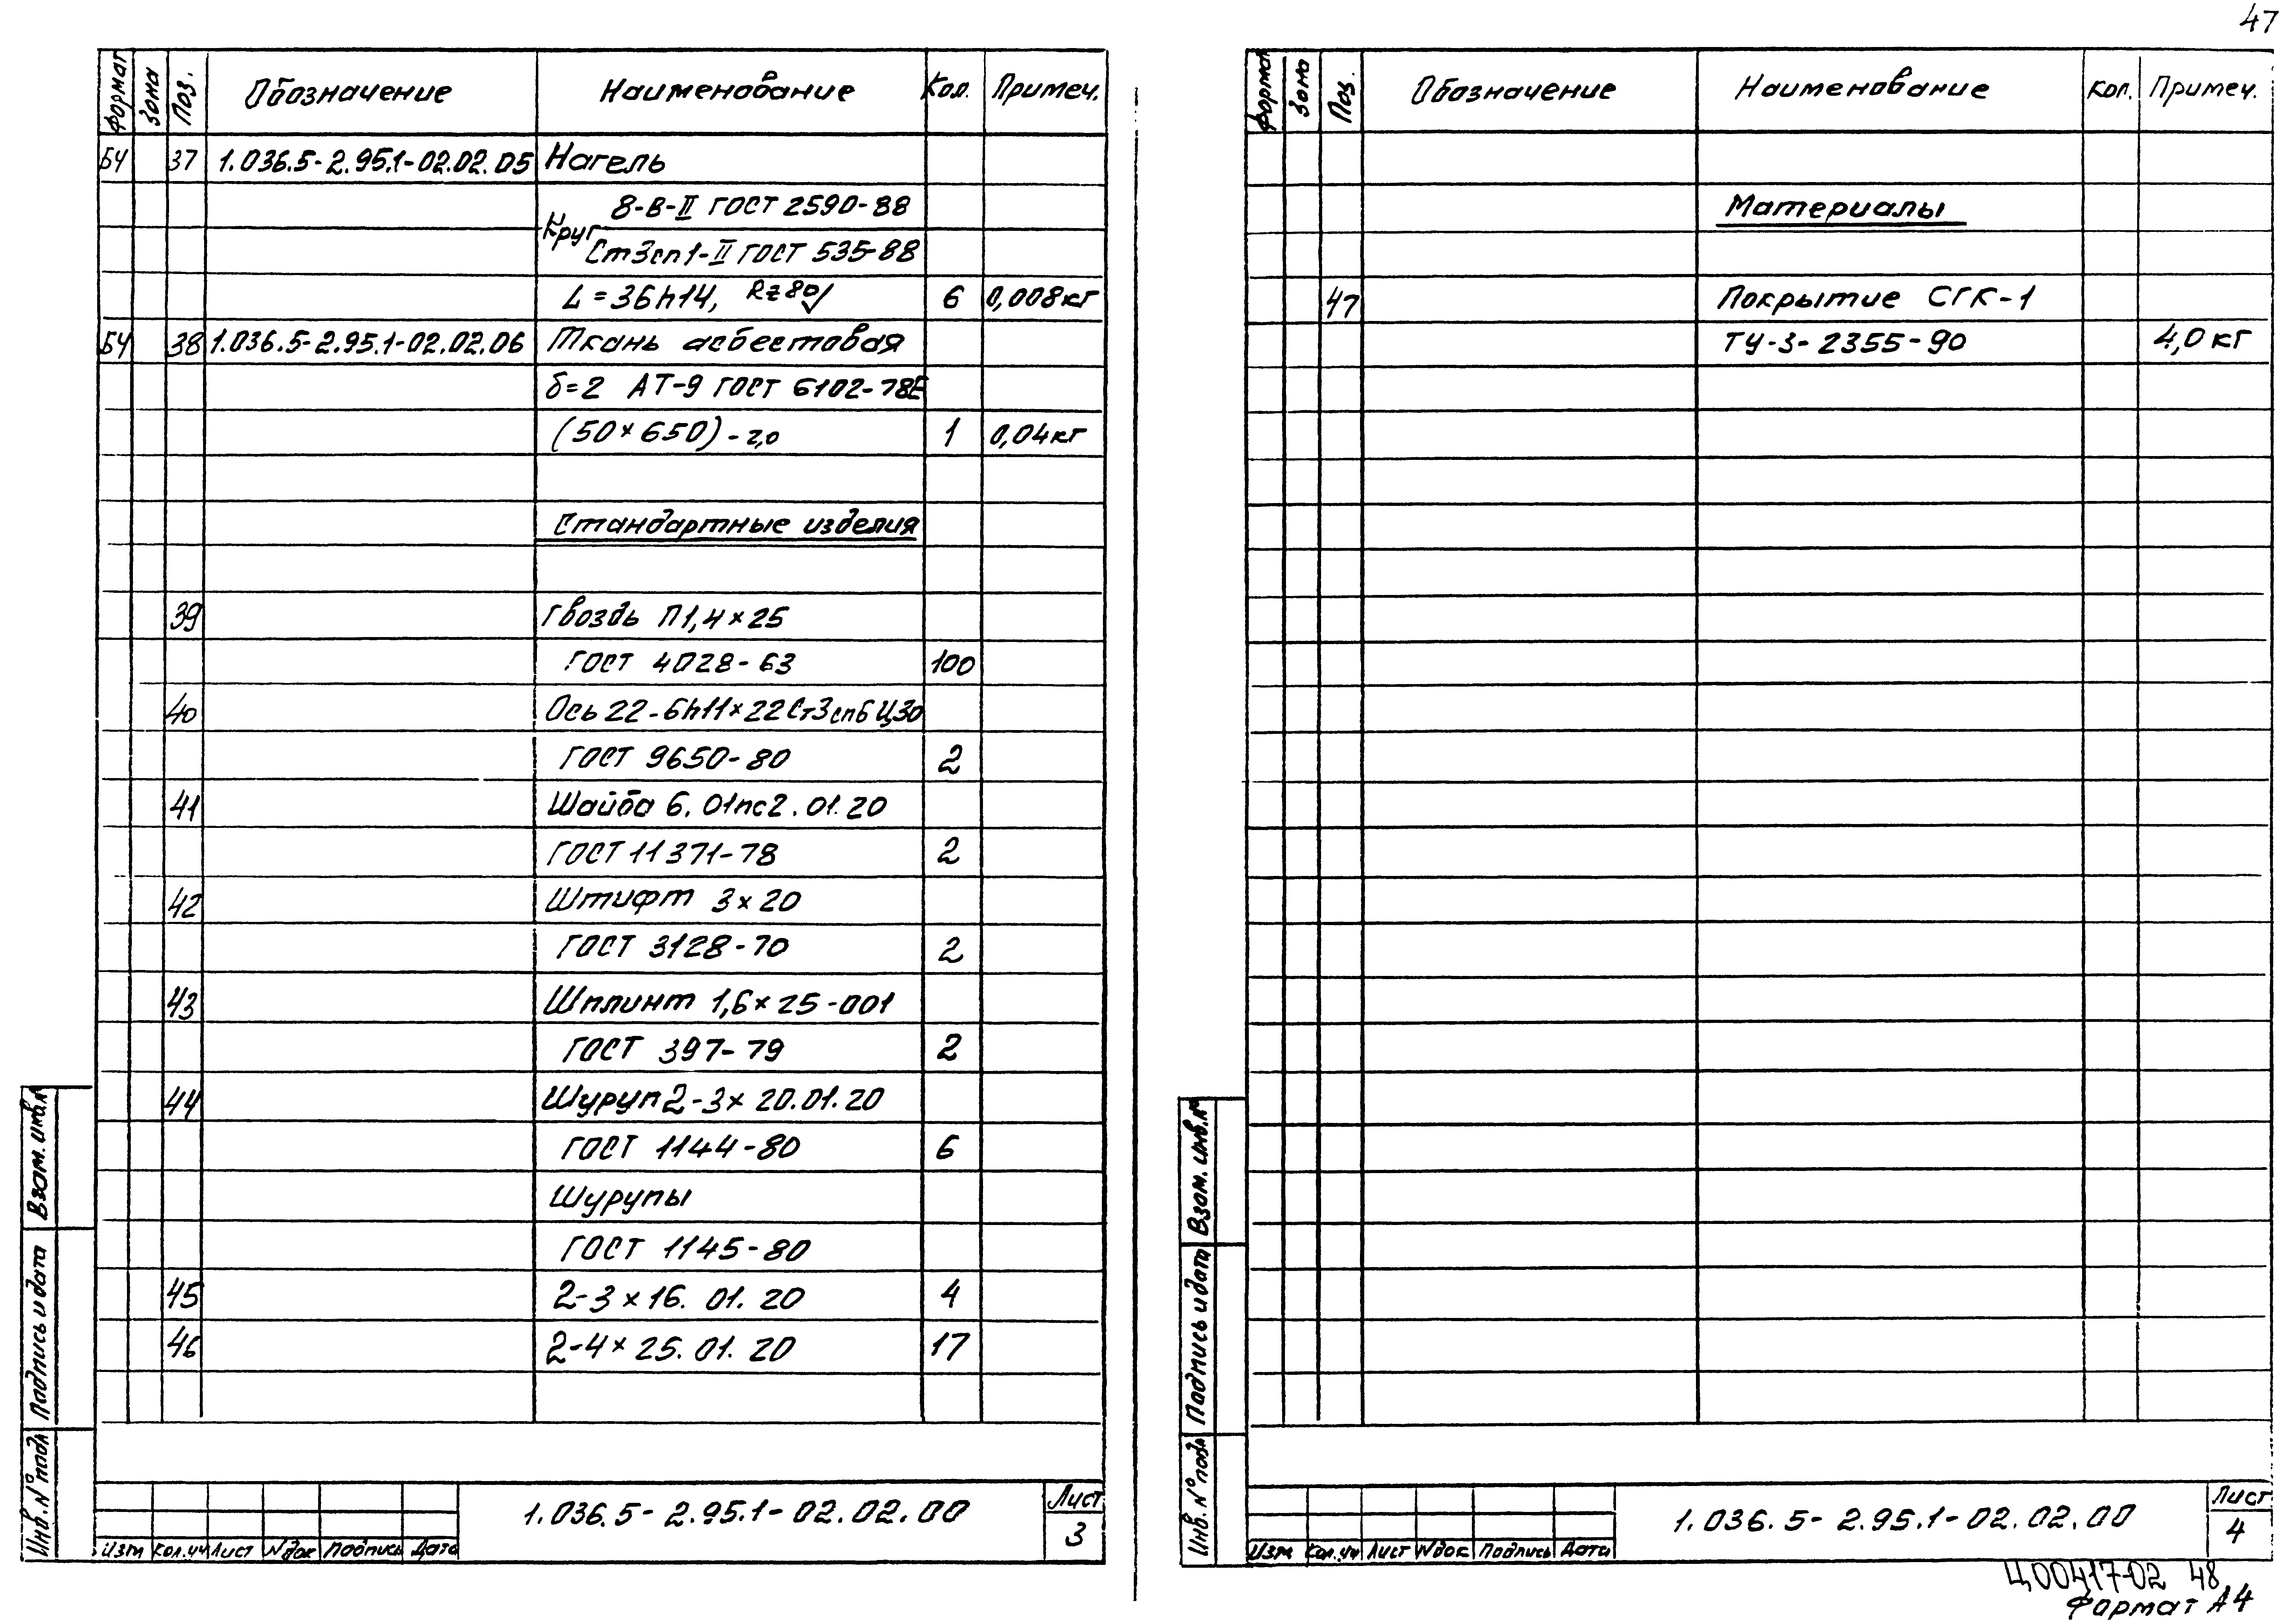 47
Формат Зона Поз. Обозначение Наименование Кол. Примеч.
БЧ 37 1.036.5-2.95.1-02.02.05 Нагель
Круг 8-В-II ГОСТ 2590-88
Ст3сп1-II ГОСТ 535-88
L=36h14, Rz80 6 0,008кг
БЧ 38 1.036.5-2.95.1-02.02.06 Ткань асбестовая
δ=2 АТ-9 ГОСТ 6102-78Е
(50×650)-2,0 1 0,04кг
Стандартные изделия
39 Гвоздь П1,4×25
ГОСТ 4028-63 100
40 Ось 22-6h11×22Ст3сп6Ц30
ГОСТ 9650-80 2
41 Шайба 6.01пс2.01.20
ГОСТ 11371-78 2
42 Штифт 3×20
ГОСТ 3128-70 2
43 Шплинт 1,6×25-001
ГОСТ 397-79 2
44 Шуруп 2-3×20.01.20
ГОСТ 1144-80 6
Шурупы
ГОСТ 1145-80
45 2-3×16.01.20 4
46 2-4×25.01.20 17
Взам. инв.№
Подпись и дата
Инв.№ подл
Изм Кол.уч Лист Nдок Подпись Дата
1.036.5-2.95.1-02.02.00
Лист
3
Формат Зона Поз. Обозначение Наименование Кол. Примеч.
Материалы
47 Покрытие СГК-1
ТУ-3-2355-90 4,0кг
Взам. инв.№
Подпись и дата
Инв.№ подл
Изм Кол.уч Лист Nдок Подпись Дата
1.036.5-2.95.1-02.02.00
Лист
4
Ц00417-02 48
Формат А4